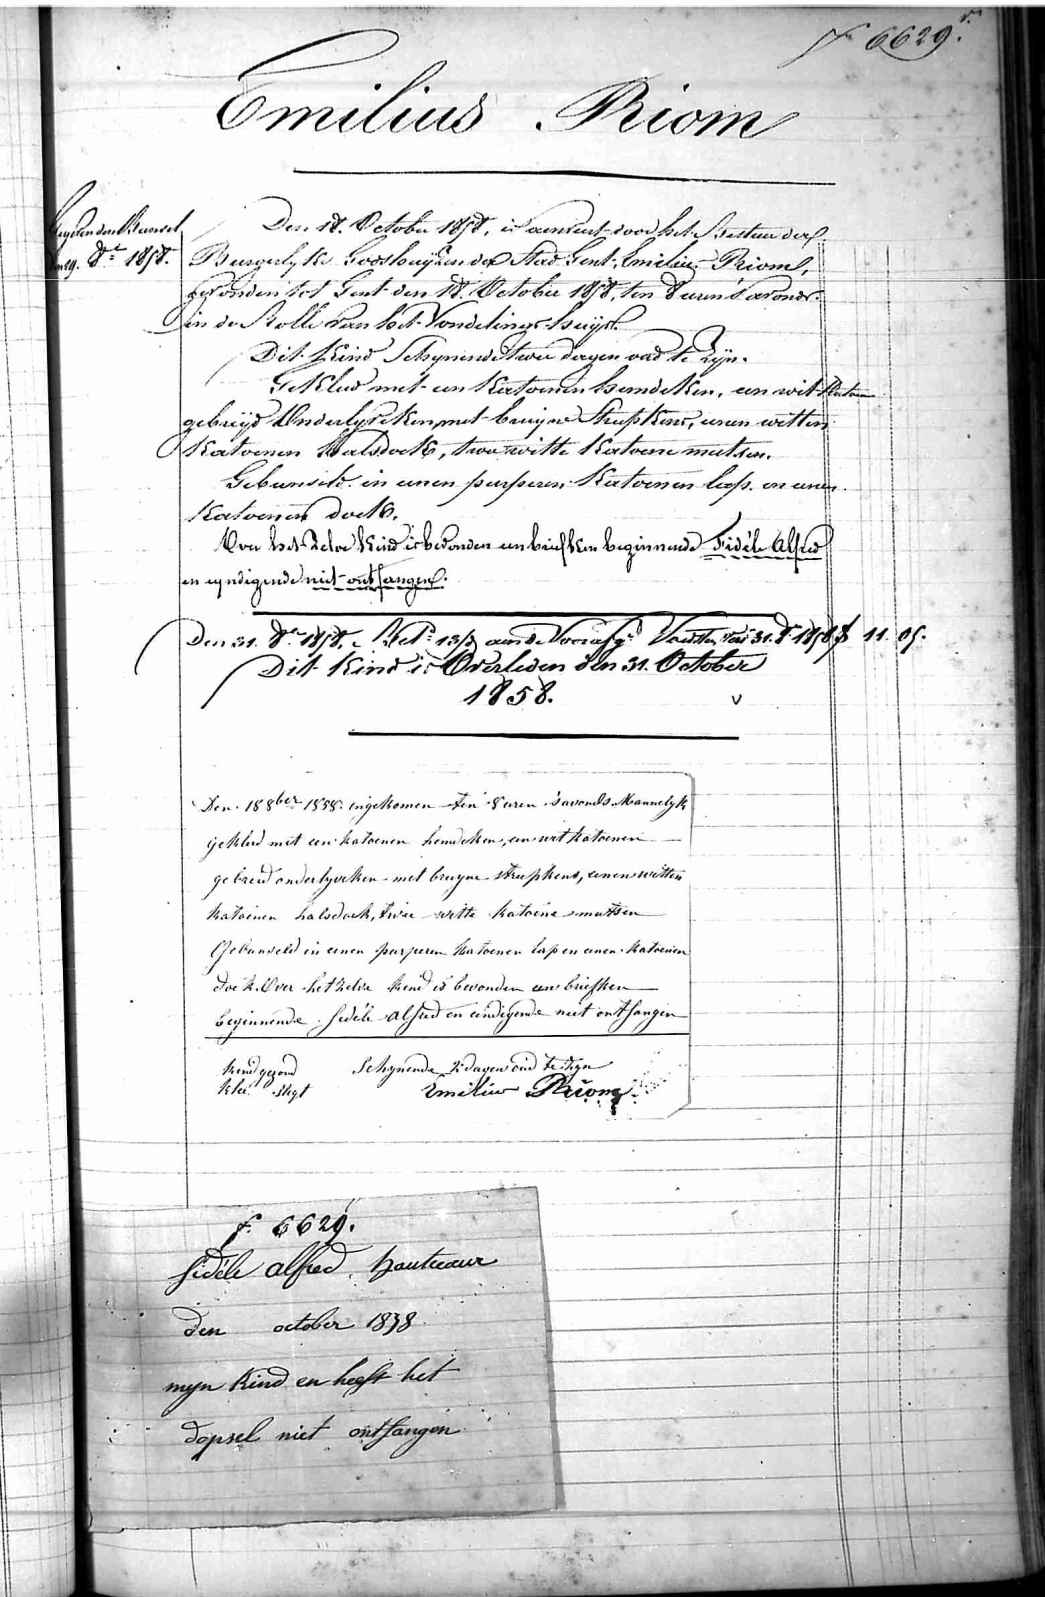 f° 6629.
Emilius Riom
Gegeven den Bussel
den 19. 8.re 1858.
Den 18. October 1858, is aenveerd door het Bestuer der
Burgerlyke Godshuyzen der Stad Gent, Emilius Riom,
gevonden tot Gent den 18. October 1858, ten 8 uren 's avonds
in de Rolle van het Vondelings-huys.
Dit Kind Schynende twee dagen oud te zyn.
Gekleed met een Katoenen hemdeken, een wit Katoen
gebreyd Onderlyveken met bruyne Strepkens, eenen witten
Katoenen Halsdoek, twee witte Katoene mutsen.
Gebunseld in eenen purperen Katoenen lap en eenen
Katoenen doek.
Over het Zelve Kind is bevonden een briefken beginnende Fidèle Alfred
en eyndigende niet ontfangen.
Den 31. 8.re 1858, Bet. 13/3 aen de Voorsz. 31. 8.re 1858 f 11.05.
Dit Kind is Overleden den 31. October
1858.
Den 18 8ber 1858. ingekomen ten 8 uren 's avonds Mannelyk
gekleed met een katoenen hemdeken, een wit katoenen
gebreid onderlyveken met bruyne strepkens, eenen witten
katoenen halsdoek, twee witte katoene mutsen
Gebunseld in eenen purperen katoenen lap en eenen katoenen
doek. Over het zelve kind is bevonden een briefken
beginnende fidèle alfred en eindigende niet ontfangen
kind gezond Schynende 2 dagen oud te zyn
klee slegt Emilius Riom
f. 6629.
fidèle alfred hautecoeur
den october 1858
myn kind en heeft het
dopsel niet ontfangen